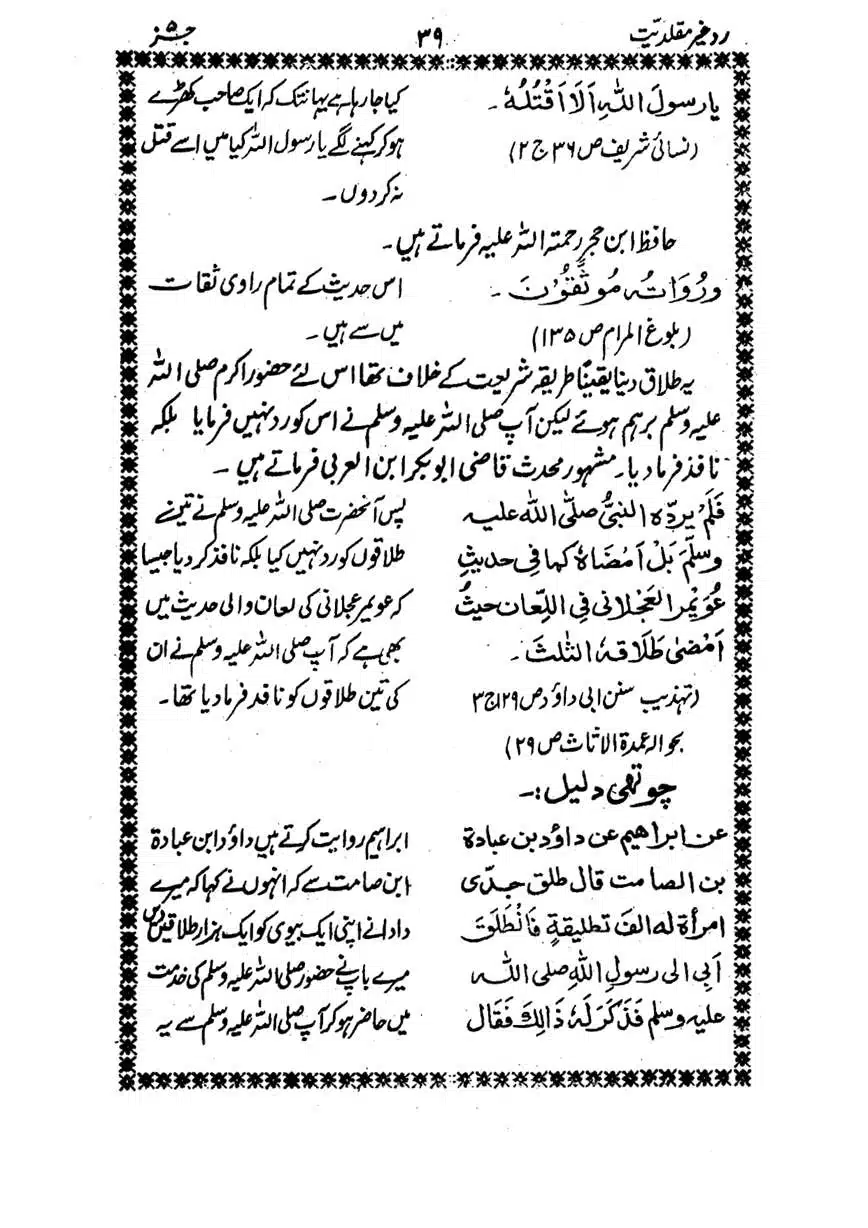 رد غیر مقلدیت
۳۹
جز ۵
یا رسولَ اللّٰہِ اَلَا اَقْتُلُہٗ ۔
کیا جا رہا ہے یہانتک کہ ایک صاحب کھڑے
(نسائی شریف ص ۳۶ ج ۲)
ہو کر کہنے لگے یا رسول اللہ کیا میں اسے قتل
نہ کر دوں ۔
حافظ ابن حجر رحمتہ اللہ علیہ فرماتے ہیں ۔
ورُوَاتُہ مُوثَّقُوْنَ ۔
اس حدیث کے تمام راوی ثقات
(بلوغ المرام ص ۱۳۵)
میں سے ہیں ۔
یہ طلاق دینا یقیناً طریقہ شریعت کے خلاف تھا اس لئے حضور اکرم صلی اللہ
علیہ وسلم برہم ہوئے لیکن آپ صلی اللہ علیہ وسلم نے اس کو رد نہیں فرمایا بلکہ
نافذ فرما دیا ۔ مشہور محدث قاضی ابوبکر ابن العربی فرماتے ہیں ۔
فَلَمْ یردّہ النبیُّ صلی اللہ علیہ
پس آنحضرت صلی اللہ علیہ وسلم نے تینے
وسلَّمَ بَلْ اَمْضَاہُ کما فی حدیثِ
طلاقوں کو رد نہیں کیا بلکہ نافذ کر دیا جیسا
عُوَیْمرِ العَجْلانی فی اللِّعان حیثُ
کہ عویمر عجلانی کی لعان والی حدیث میں
اَمْضیٰ طَلَاقَہٗ الثلٰثَ ۔
بھی ہے کہ آپ صلی اللہ علیہ وسلم نے ان
(تہذیب سنن ابی داؤد ص ۱۲۹ ج ۳
کی تین طلاقوں کو نافذ فرما دیا تھا ۔
بحوالہ عمدۃ الاثاث ص ۲۹)
چوتھی دلیل :۔
عن ابراھیم عن داؤد بن عبادۃ
ابراہیم روایت کرتے ہیں داؤد ابن عبادۃ
بن الصامت قال طلق جدّی
ابن صامت سے کہ انہوں نے کہا کہ میرے
امرأۃ لہ الفَ تطلیقۃٍ فَانْطَلَقَ
دادا نے اپنی ایک بیوی کو ایک ہزار طلاقیں دیں
اَبِی الی رسولِ اللّٰہِ صلی اللہ
میرے باپ نے حضور صلی اللہ علیہ وسلم کی خدمت
علیہ وسلم فَذَکَرَ لَہٗ ذَالِکَ فَقَال
میں حاضر ہو کر آپ صلی اللہ علیہ وسلم سے یہ